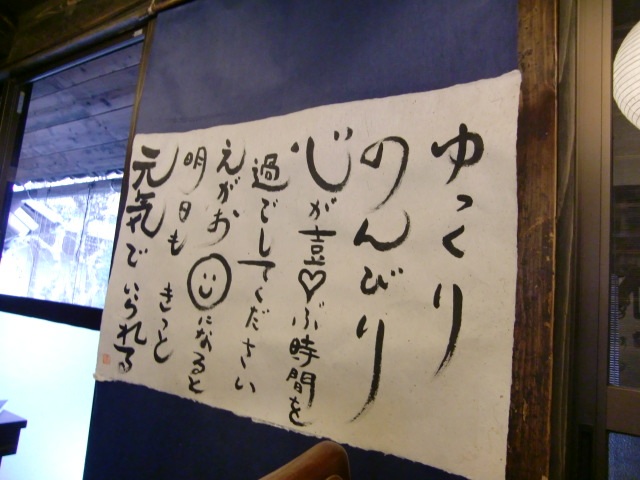 ゆっくり
のんびり
心が喜♡ぶ時間を
過ごしてください
えがお☺になると
明日もきっと
元気でいられる